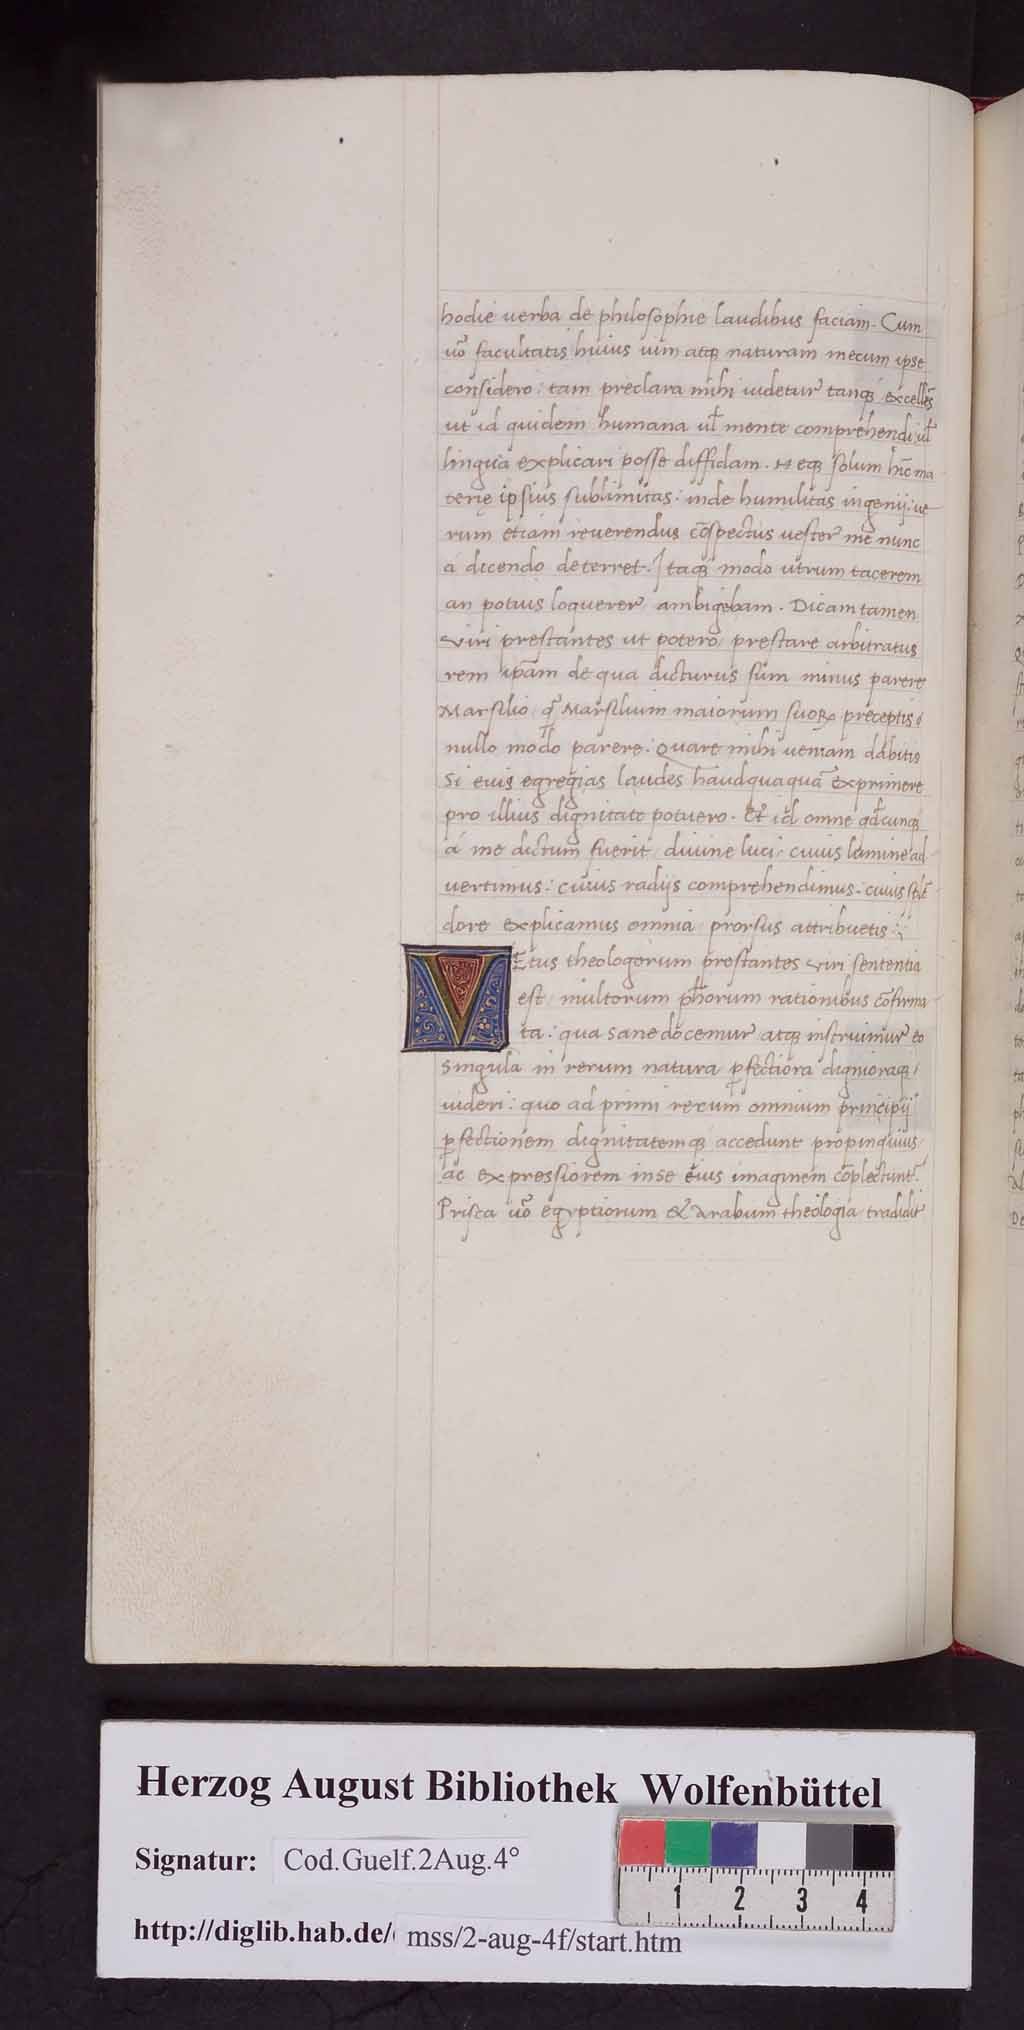 hodie uerba de philosophie laudibus faciam. Cum
uo᷑ facultatis huius uim atqꝫ naturam mecum ipse
considero: tam preclara mihi uidetur tanqꝫ excelle᷑s
ut id quidem humana ul̃ mente comprehendi ul̃
lingua explicari posse diffidam. Neqꝫ solum hĩc ma
terię ipsius sublimitas: inde humilitas ingenij: ue
rum etiam reuerendus cõspectus uester me nunc
a dicendo deterret. Itaqꝫ modo utrum tacerem
an potius loquerer ambigebam. Dicam tamen
uiri prestantes ut potero prestare arbitratus
rem ipãm de qua dicturus sum minus parere
Marsilio q̃ Marsilium maiorum suoꝝ preceptis
nullo modo parere: Quare mihi ueniam dabitis
Si eius egregias laudes haudquaquã exprimere
pro illius dignitate potuero. Et id omne qdcunqꝫ
á me dictum fuerit diuine luci: cuius lumine ad
uertimus: cuius radijs comprehendimus. cuius splẽ
dore explicamus omnia prorsus attribuetis:
VEtus theologorum prestantes uiri sententia
est multorum ph̃orum rationibus cõfirma
ta: qua sane docemur atqꝫ instruimur eo
singula in rerum natura ꝑfectiora dignioraqꝫ
uideri: quo ad primi rerum omnium principij
ꝑfectionem dignitatemqꝫ accedunt propinquius
ac expressiorem inse eius imaginem cõplectunt᷑.
Prisca uo᷑ egyptiorum & Arabum theologia tradidit
Herzog August Bibliothek Wolfenbüttel
Signatur: Cod.Guelf.2Aug.4°
http://diglib.hab.de/ mss/2-aug-4f/start.htm
1 2 3 4